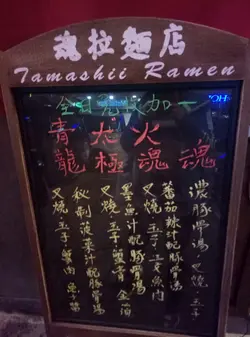 魂拉麵店
Tamashii Ramen
全日加一
青火
龍極魂魂
濃豚骨湯，叉燒，玉子
蕃茄辣汁配豚骨湯
叉燒 玉子 魚肉
墨魚汁配豚骨湯
叉燒 玉子 蟹膏 金箔
秘制菠菜汁配豚骨湯
叉燒 玉子 蟹肉 魚子醬